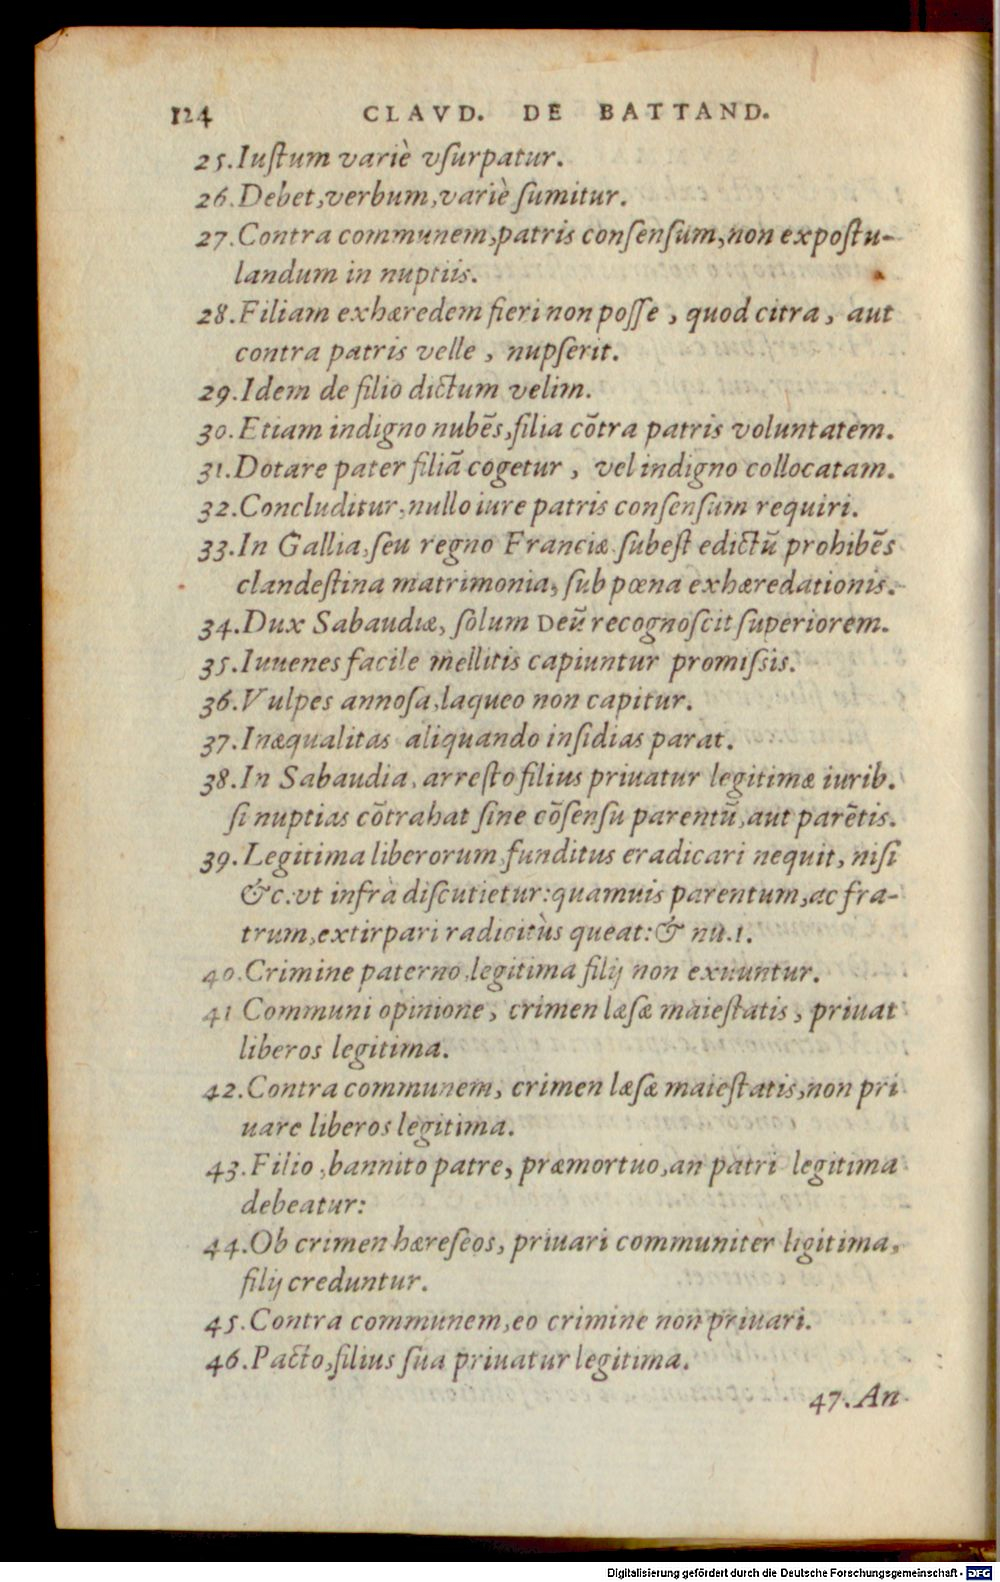 124 CLAVD. DE BATTAND.
25. Iuſtum variè vſurpatur.
26. Debet, verbum, variè ſumitur.
27. Contra communem, patris conſenſum, non expoſtu-
landum in nuptiis.
28. Filiam exhæredem fieri non poſſe, quod citra, aut
contra patris velle, nupſerit.
29. Idem de filio dictum velim.
30. Etiam indigno nubẽs, filia cõtra patris voluntatem.
31. Dotare pater filiã cogetur, vel indigno collocatam.
32. Concluditur, nullo iure patris conſenſum requiri.
33. In Gallia, ſeu regno Franciæ ſubeſt edictũ prohibẽs
clandeſtina matrimonia, ſub pœna exhæredationis.
34. Dux Sabaudiæ, ſolum Deũ recognoſcit ſuperiorem.
35. Iuuenes facile mellitis capiuntur promiſsis.
36. Vulpes annoſa, laqueo non capitur.
37. Inæqualitas aliquando inſidias parat.
38. In Sabaudia, arreſto filius priuatur legitimæ iurib.
ſi nuptias cõtrahat ſine cõſenſu parentũ, aut parẽtis.
39. Legitima liberorum, funditus eradicari nequit, niſi
&c. vt infrà diſcutietur: quamuis parentum, ac fra-
trum, extirpari radicitùs queat: & nu. 1.
40. Crimine paterno, legitima filij non exuuntur.
41 Communi opinione, crimen læſæ maieſtatis, priuat
liberos legitima.
42. Contra communem, crimen læſæ maieſtatis, non pri
uare liberos legitima.
43. Filio, bannito patre, præmortuo, an patri legitima
debeatur:
44. Ob crimen hæreſeos, priuari communiter ligitima,
filij creduntur.
45. Contra communem, eo crimine non priuari.
46. Pacto, filius ſua priuatur legitima.
47. An
Digitalisierung gefördert durch die Deutsche Forschungsgemeinschaft - DFG